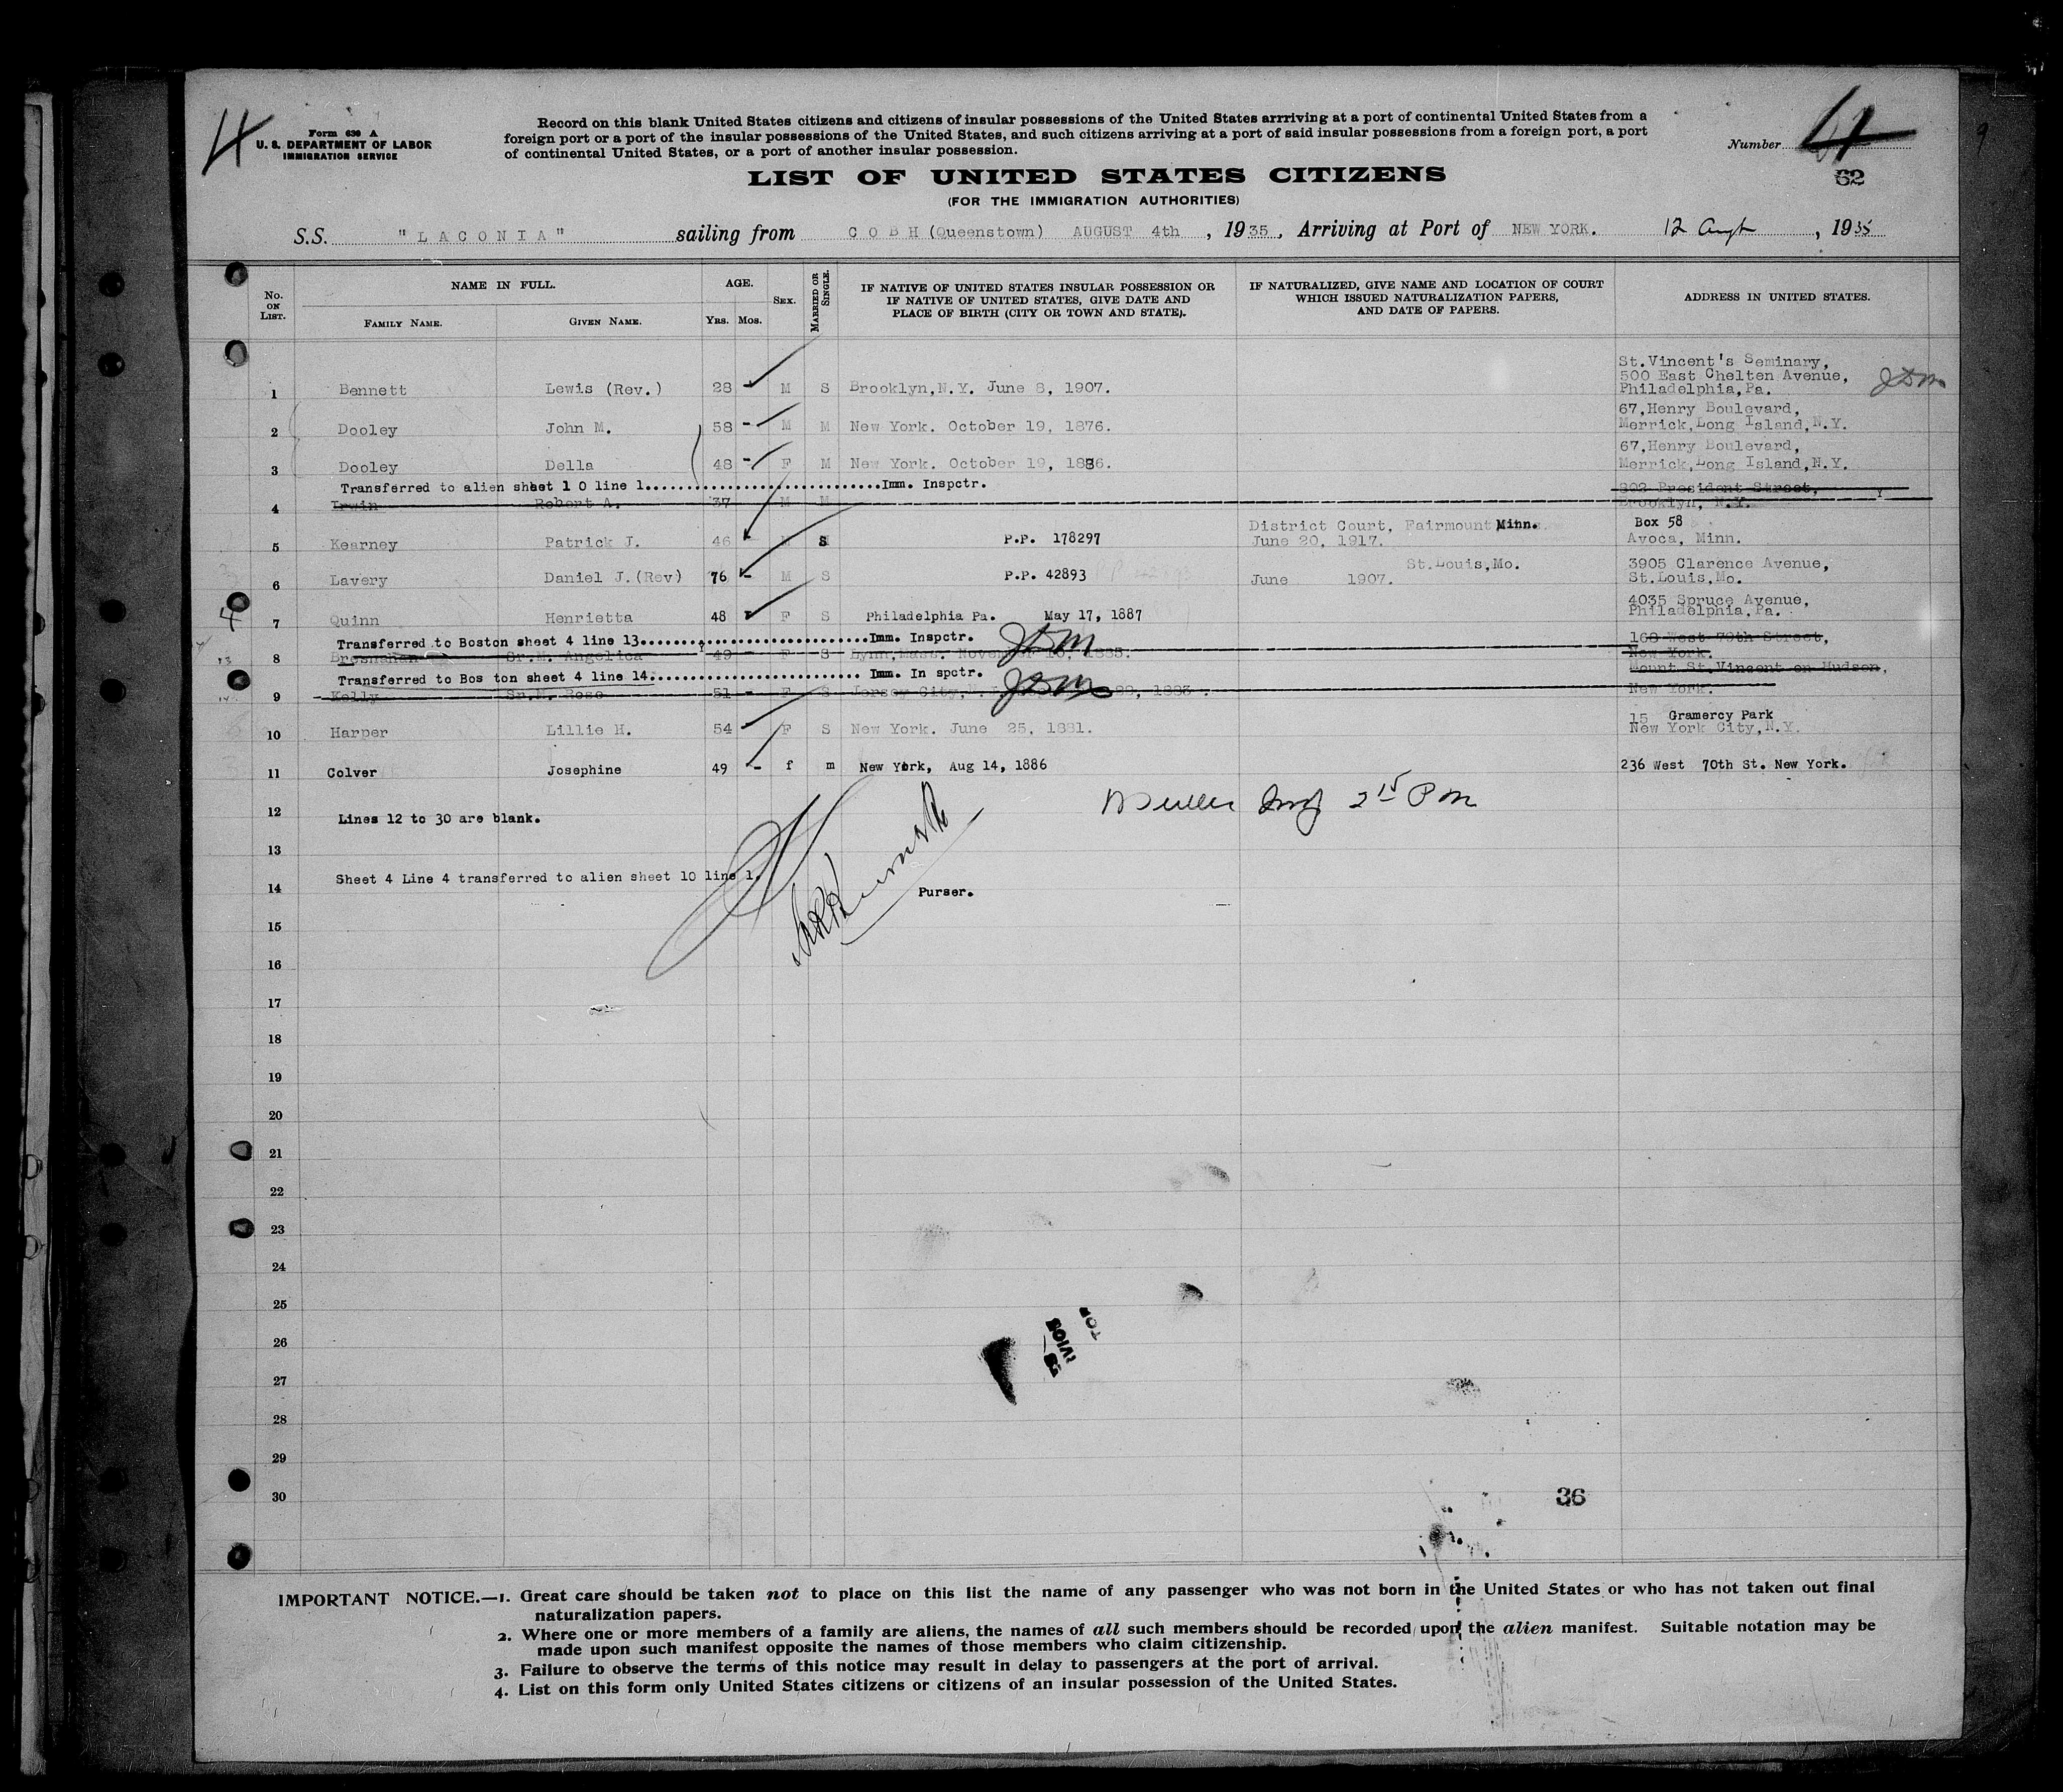 4
Form 630 A
U. S. DEPARTMENT OF LABOR
IMMIGRATION SERVICE
Record on this blank United States citizens and citizens of insular possessions of the United States arrriving at a port of continental United States from a
foreign port or a port of the insular possessions of the United States, and such citizens arriving at a port of said insular possessions from a foreign port, a port
of continental United States, or a port of another insular possession.
Number 4
62
9
LIST OF UNITED STATES CITIZENS
(FOR THE IMMIGRATION AUTHORITIES)
S.S. "LACONIA" sailing from COBH (Queenstown) AUGUST 4th, 1935, Arriving at Port of NEW YORK. 12 Augt, 1935
No. ON LIST. NAME IN FULL. AGE. SEX. MARRIED OR SINGLE. IF NATIVE OF UNITED STATES INSULAR POSSESSION OR IF NATIVE OF UNITED STATES, GIVE DATE AND PLACE OF BIRTH (CITY OR TOWN AND STATE). IF NATURALIZED, GIVE NAME AND LOCATION OF COURT WHICH ISSUED NATURALIZATION PAPERS, AND DATE OF PAPERS. ADDRESS IN UNITED STATES.
FAMILY NAME. GIVEN NAME. YRS. MOS.
St.Vincent's Seminary,
500 East Chelten Avenue,
1 Bennett Lewis (Rev.) 28 - M S Brooklyn,N.Y. June 8, 1907. Philadelphia,Pa. JDM
67,Henry Boulevard,
2 Dooley John M. 58 - M M New York. October 19, 1876. Merrick,Long Island,N.Y.
67,Henry Boulevard,
3 Dooley Della 48 - F M New York. October 19, 1886. Merrick,Long Island,N.Y.
Transferred to alien sheet 1 0 line 1........Imm. Inspctr. 802 President Street,
4 Irwin Robert A. 37 M M Brooklyn, N.Y.
District Court, Fairmount Minn. Box 58
5 Kearney Patrick J. 46 - M S P.P. 178297 June 20, 1917. Avoca, Minn.
St.Louis,Mo. 3905 Clarence Avenue,
6 Lavery Daniel J.(Rev) 76 - M S P.P. 42893 June 1907. St.Louis,Mo.
4035 Spruce Avenue,
4 7 Quinn Henrietta 48 - F S Philadelphia Pa. May 17, 1887 Philadelphia,Pa.
Transferred to Boston sheet 4 line 13........Imm. Inspctr. JDM 168 West 79th Street,
13 8 Bresnahan Sr.M. Angelica 49 - F S Lynn,Mass. November 1885. New York.
Transferred to Bos ton sheet 4 line 14........Imm. In spctr. JDM Mount St.Vincent on Hudson,
14 9 Kelly Sr.M. Rose 51 - F S Jersey City, 1883. New York.
15 Gramercy Park
10 Harper Lillie H. 54 - F S New York. June 25, 1881. New York City,N.Y.
11 Colver Josephine 49 - f m New York, Aug 14, 1886 236 West 70th St. New York.
12 Lines 12 to 30 are blank.
13
Sheet 4 Line 4 transferred to alien sheet 10 line 1.
14 Purser.
15
16
17
18
19
20
21
22
23
24
25
26
27
28
29
30 36
IMPORTANT NOTICE.—1. Great care should be taken not to place on this list the name of any passenger who was not born in the United States or who has not taken out final
naturalization papers.
2. Where one or more members of a family are aliens, the names of all such members should be recorded upon the alien manifest. Suitable notation may be
made upon such manifest opposite the names of those members who claim citizenship.
3. Failure to observe the terms of this notice may result in delay to passengers at the port of arrival.
4. List on this form only United States citizens or citizens of an insular possession of the United States.